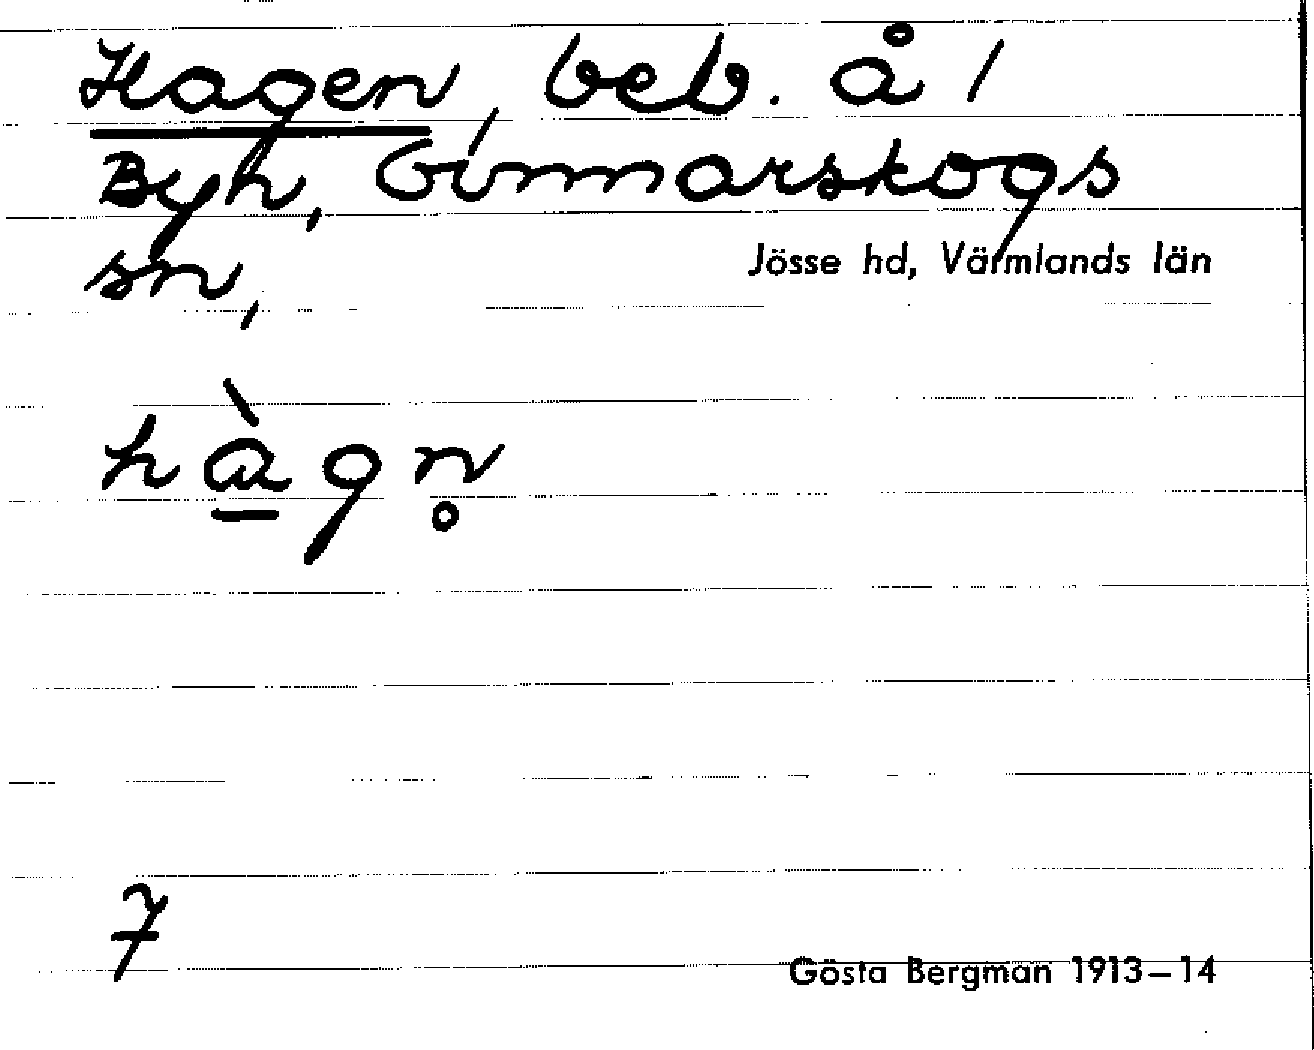 Hagen, beb. å 1
Byn, Gunnarskogs
sn,
Jösse hd, Värmlands län
hàgn̥
7
Gösta Bergman 1913–14